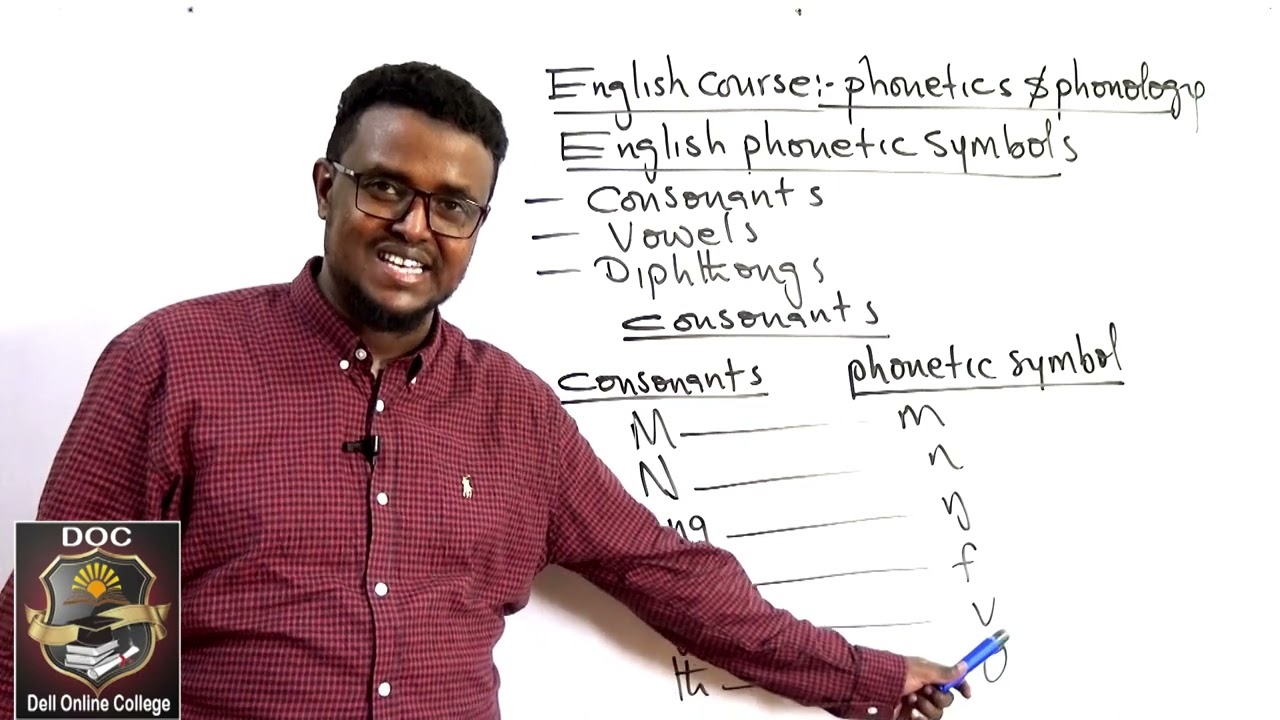 English course:- phonetics & phonology
English phonetic symbols
— Consonants
— Vowels
— Diphthongs
consonants
consonants phonetic symbol
M — m
N — n
ng — ŋ
f
v
th —
DOC
Dell Online College